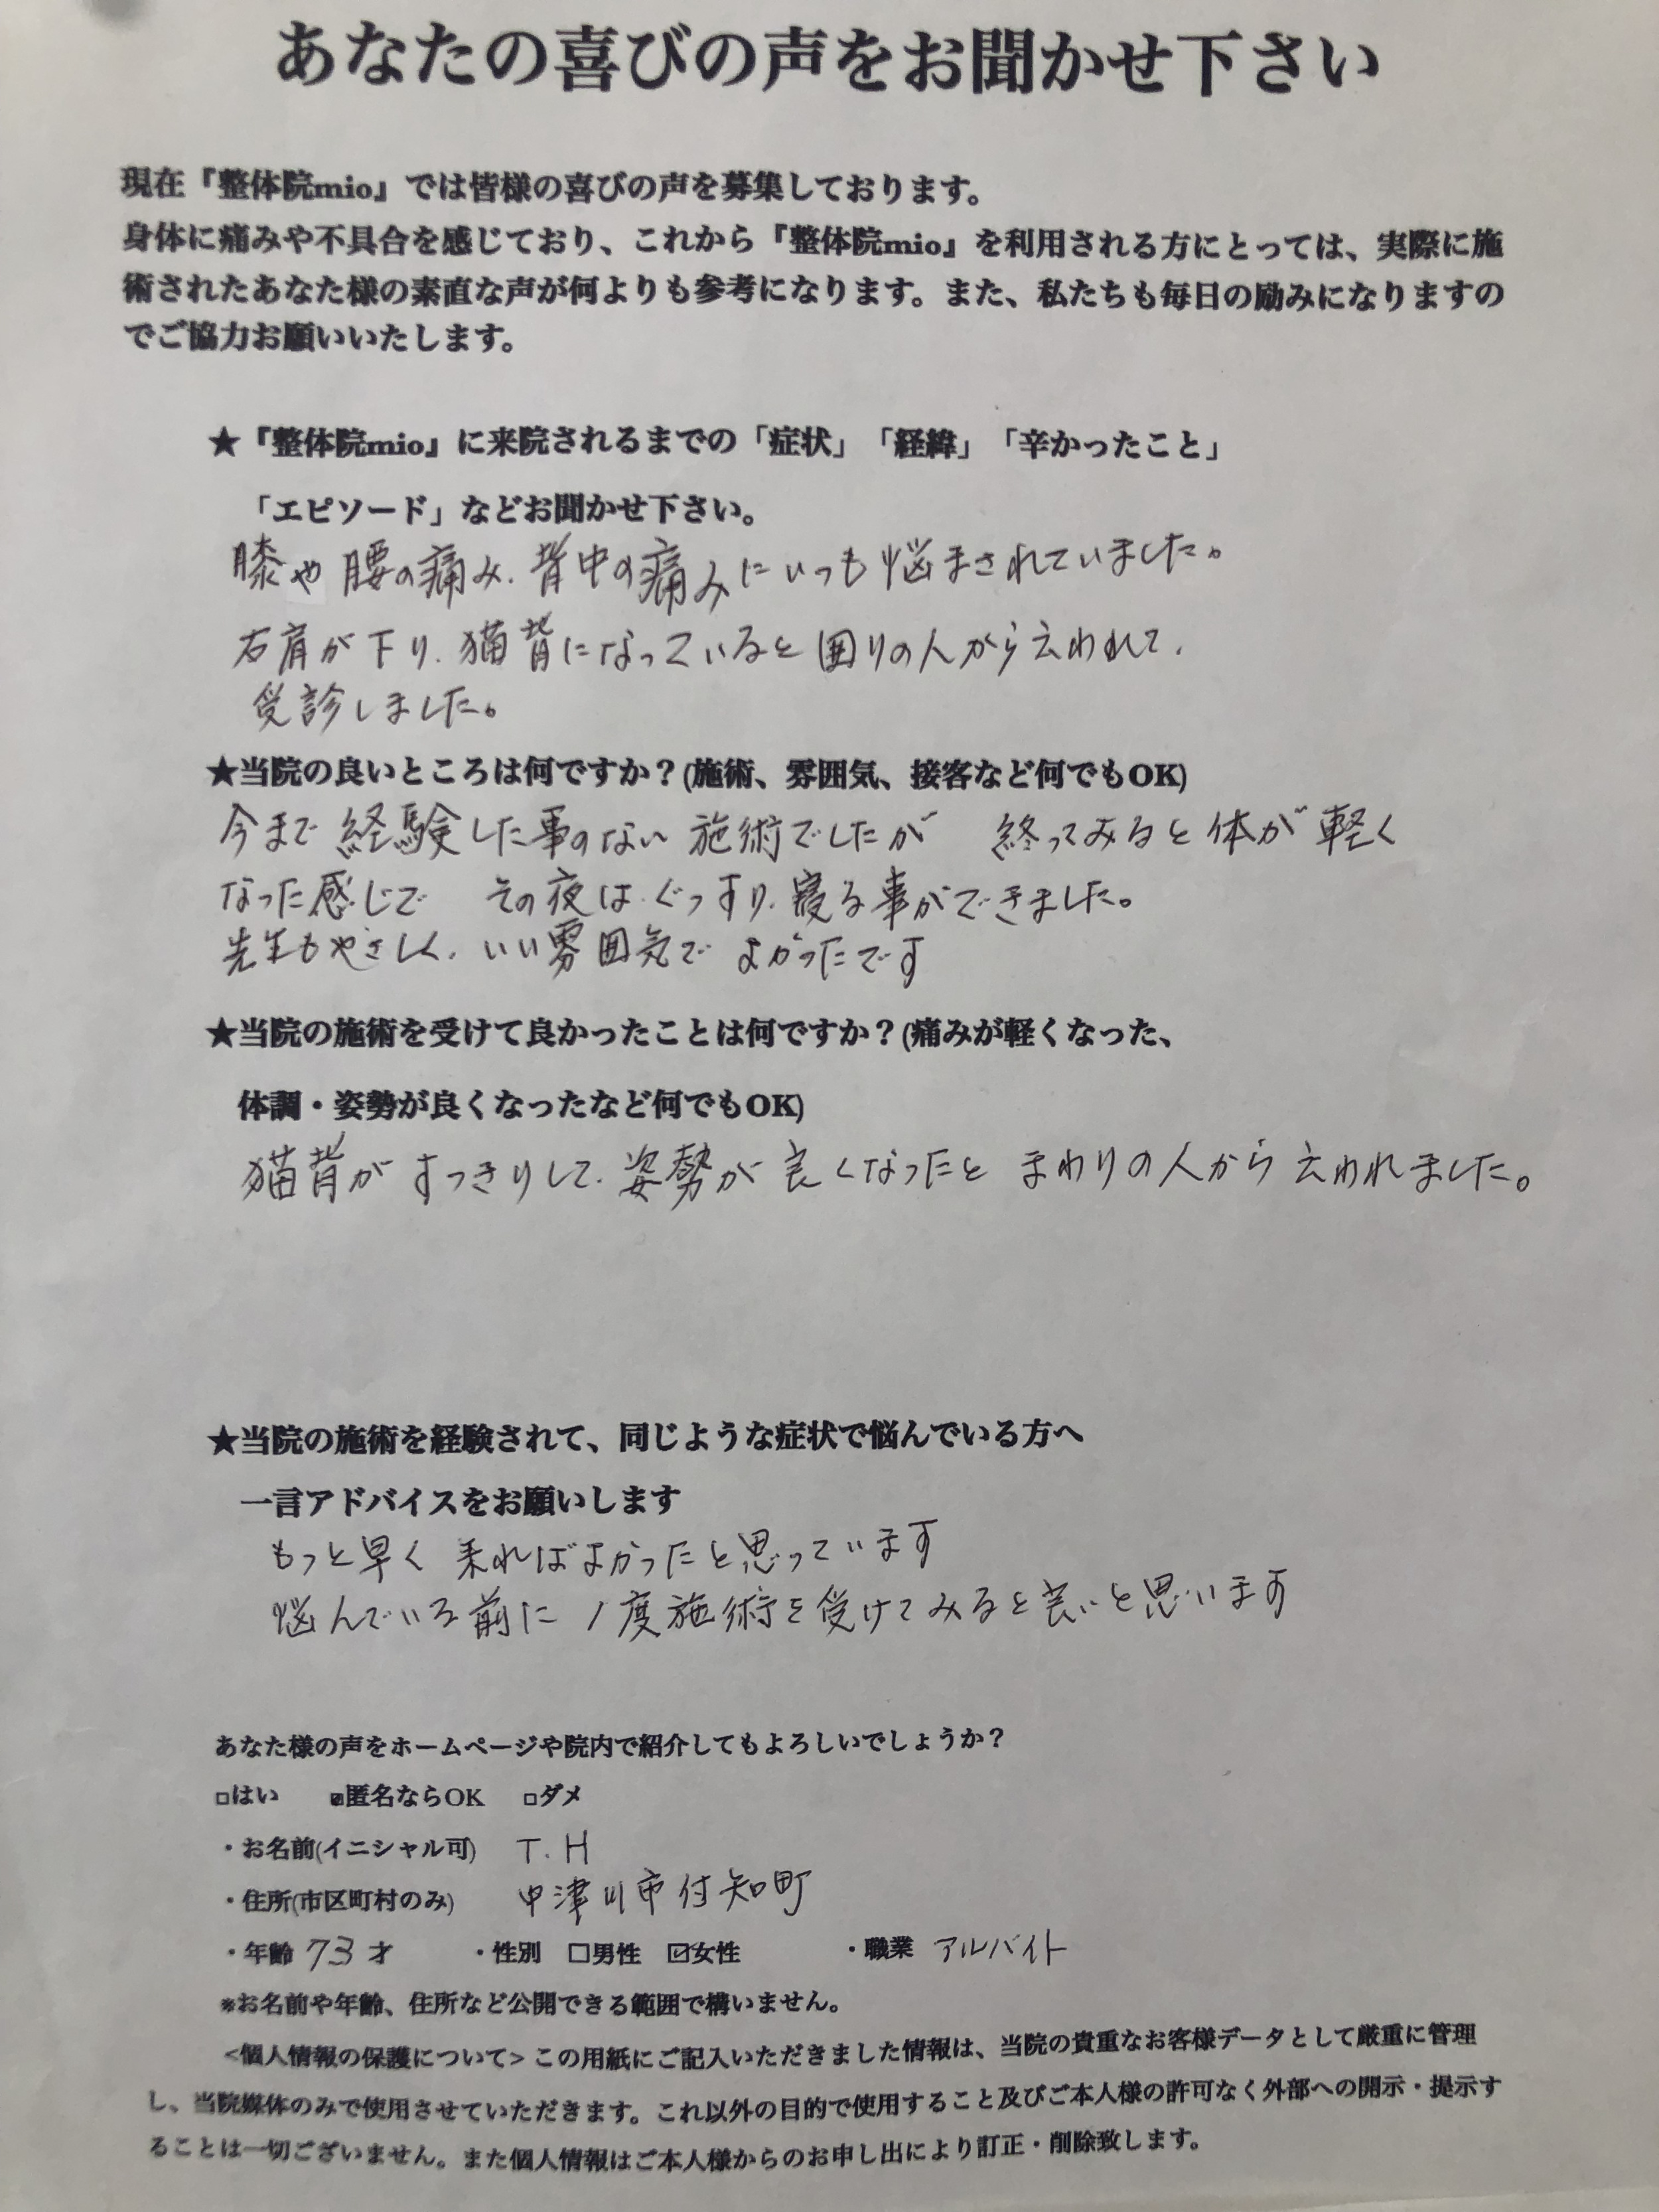 あなたの喜びの声をお聞かせ下さい
現在『整体院mio』では皆様の喜びの声を募集しております。
身体に痛みや不具合を感じており、これから『整体院mio』を利用される方にとっては、実際に施
術されたあなた様の素直な声が何よりも参考になります。また、私たちも毎日の励みになりますの
でご協力お願いいたします。
★『整体院mio』に来院されるまでの「症状」「経緯」「辛かったこと」
「エピソード」などお聞かせ下さい。
膝や腰の痛み、背中の痛みにいつも悩まされていました。
右肩が下り、猫背になっていると囲りの人から云われて、
受診しました。
★当院の良いところは何ですか？(施術、雰囲気、接客など何でもOK)
今まで経験した事のない施術でしたが 終ってみると体が軽く
なった感じで その夜は、ぐっすり、寝る事ができました。
先生もやさしく、いい雰囲気で よかったです
★当院の施術を受けて良かったことは何ですか？(痛みが軽くなった、
体調・姿勢が良くなったなど何でもOK)
猫背がすっきりして、姿勢が良くなったと まわりの人から云われました。
★当院の施術を経験されて、同じような症状で悩んでいる方へ
一言アドバイスをお願いします
もっと早く来ればよかったと思っています
悩んでいる前に1度施術を受けてみると良いと思います
あなた様の声をホームページや院内で紹介してもよろしいでしょうか？
□はい ☑匿名ならOK □ダメ
・お名前(イニシャル可) T.H
・住所(市区町村のみ) 中津川市付知町
・年齢 73 才 ・性別 □男性 ☑女性 ・職業 アルバイト
※お名前や年齢、住所など公開できる範囲で構いません。
<個人情報の保護について> この用紙にご記入いただきました情報は、当院の貴重なお客様データとして厳重に管理
し、当院媒体のみで使用させていただきます。これ以外の目的で使用すること及びご本人様の許可なく外部への開示・提示す
ることは一切ございません。また個人情報はご本人様からのお申し出により訂正・削除致します。